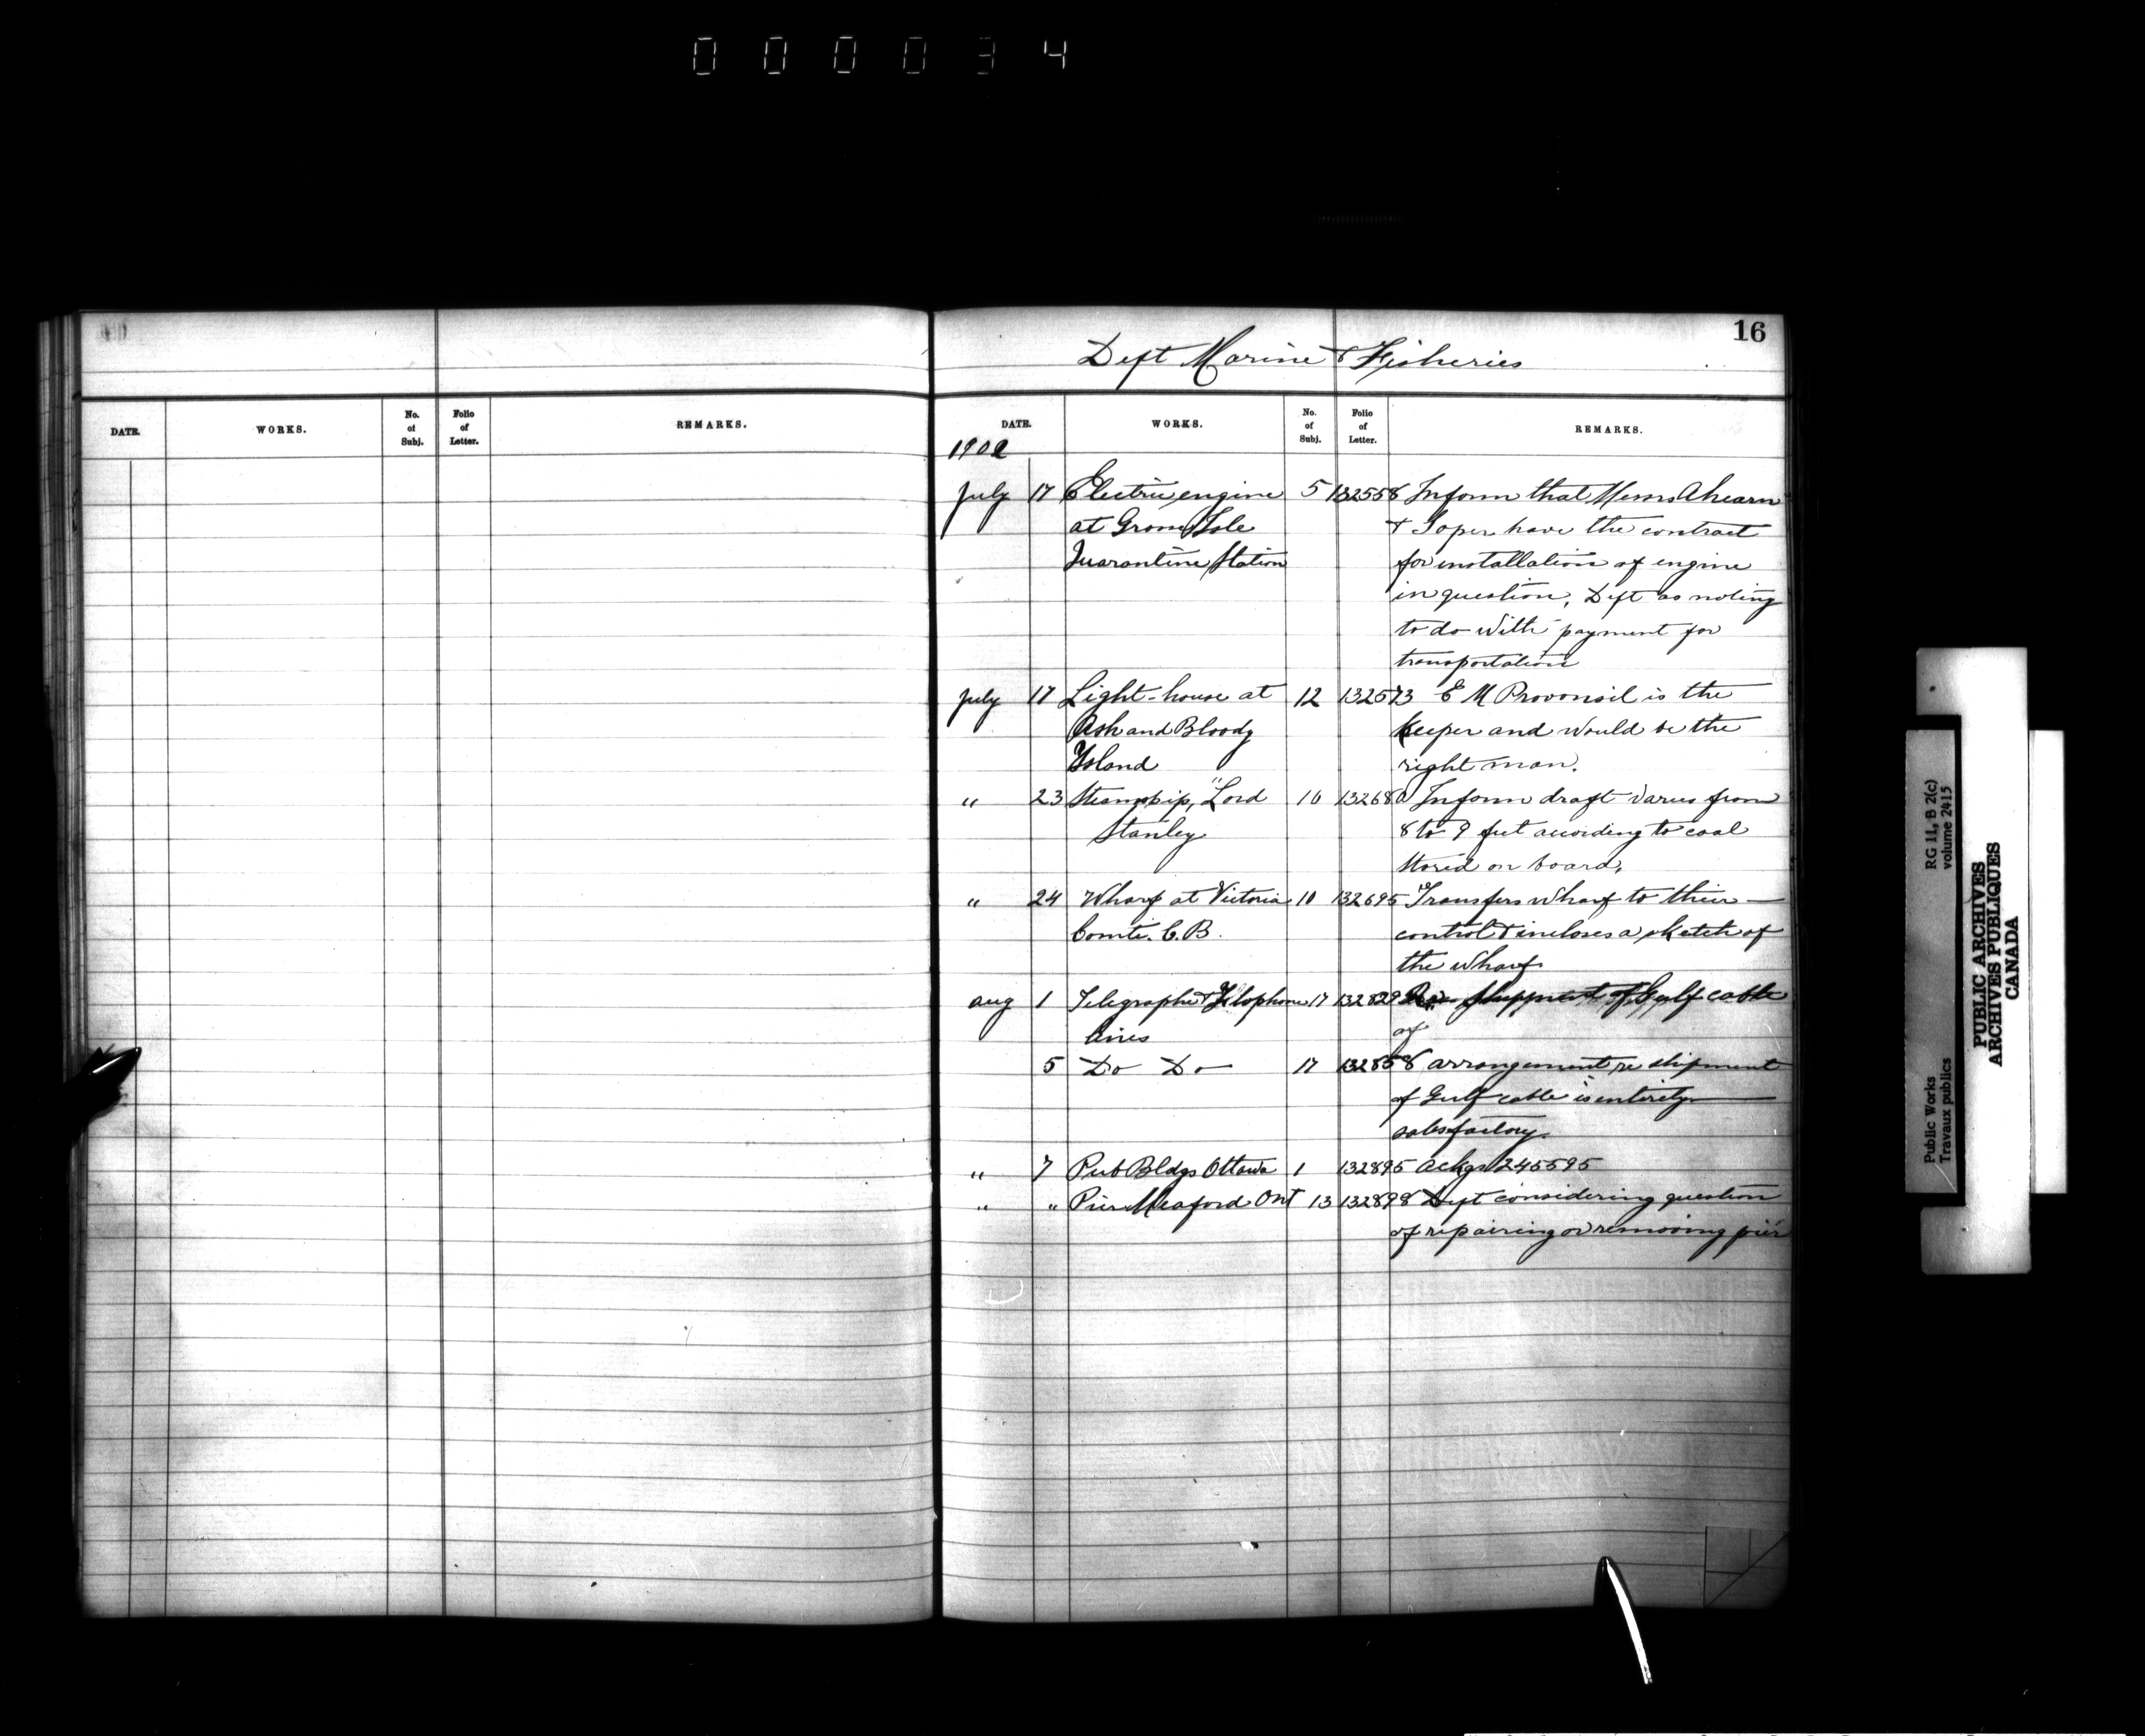 000034
16
Dept Marine & Fisheries
DATE. WORKS. No. of Subj. Folio of Letter. REMARKS.
DATE. WORKS. No. of Subj. Folio of Letter. REMARKS.
1902
July 17 Electric engine 5 132558 Inform that Messrs Ahearn
at Grosse Isle & Soper have the contract
Quarantine Station for installation of engine
in question, Dept as noting
to do with payment for
transportation
July 17 Light-house at 12 132573 E M Provonsil is the
Ash and Bloody keeper and would be the
Island right man.
" 23 Steamship, "Lord 10 132680 Inform draft varies from
Stanley 8 to 9 feet according to coal
stored on board,
" 24 Wharf at Victoria 10 132695 Transfers wharf to their
Comté. C.B. control & incloses a sketch of
the wharf
aug 1 Telegraphe & Telophone 17 132829 Re shippment of Gulf cable
lines of
5 Do Do 17 132858 arrangement re shipment
of Gulf cable is entirely
satisfactory.
" 7 Pub Bldgs Ottawa 1 132895 Ackgs 245595
" " Pier Meaford Ont 13 132898 Dept considering question
of repairing or removing pier
Public Works RG 11, B 2(c)
Travaux publics volume 2415
PUBLIC ARCHIVES
ARCHIVES PUBLIQUES
CANADA